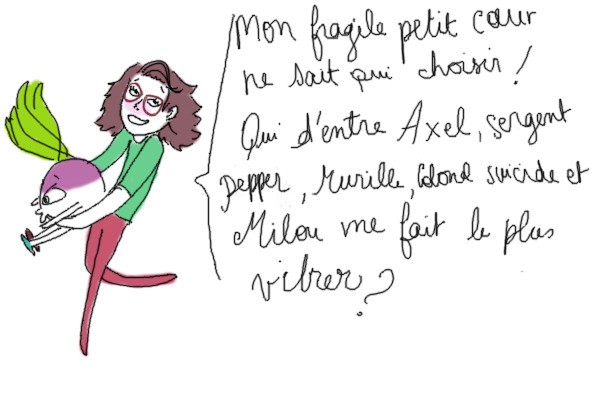 Mon fragile petit cœur
ne sait qui choisir !
Qui d'entre Axel, sergent
pepper, Murille, Colonel suicide et
Milou me fait le plus
vibrer ?